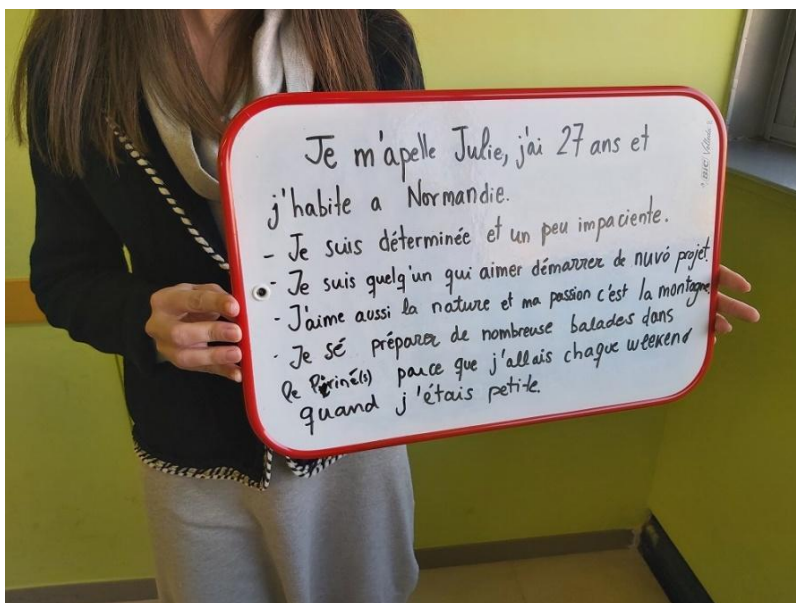 Je m'apelle Julie, j'ai 27 ans et
j'habite a Normandie.
- Je suis déterminée et un peu impaciente.
- Je suis quelq'un qui aimer démarrer de nuvó projet.
- J'aime aussi la nature et ma passion c'est la montagne.
- Je sé préparer de nombreuse balades dans
le Piriné(s) parce que j'allais chaque weekend
quand j'étais petite.
BIC Velleda